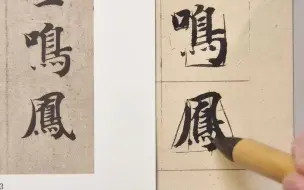 鳴
鳳
鳴
鳳
3